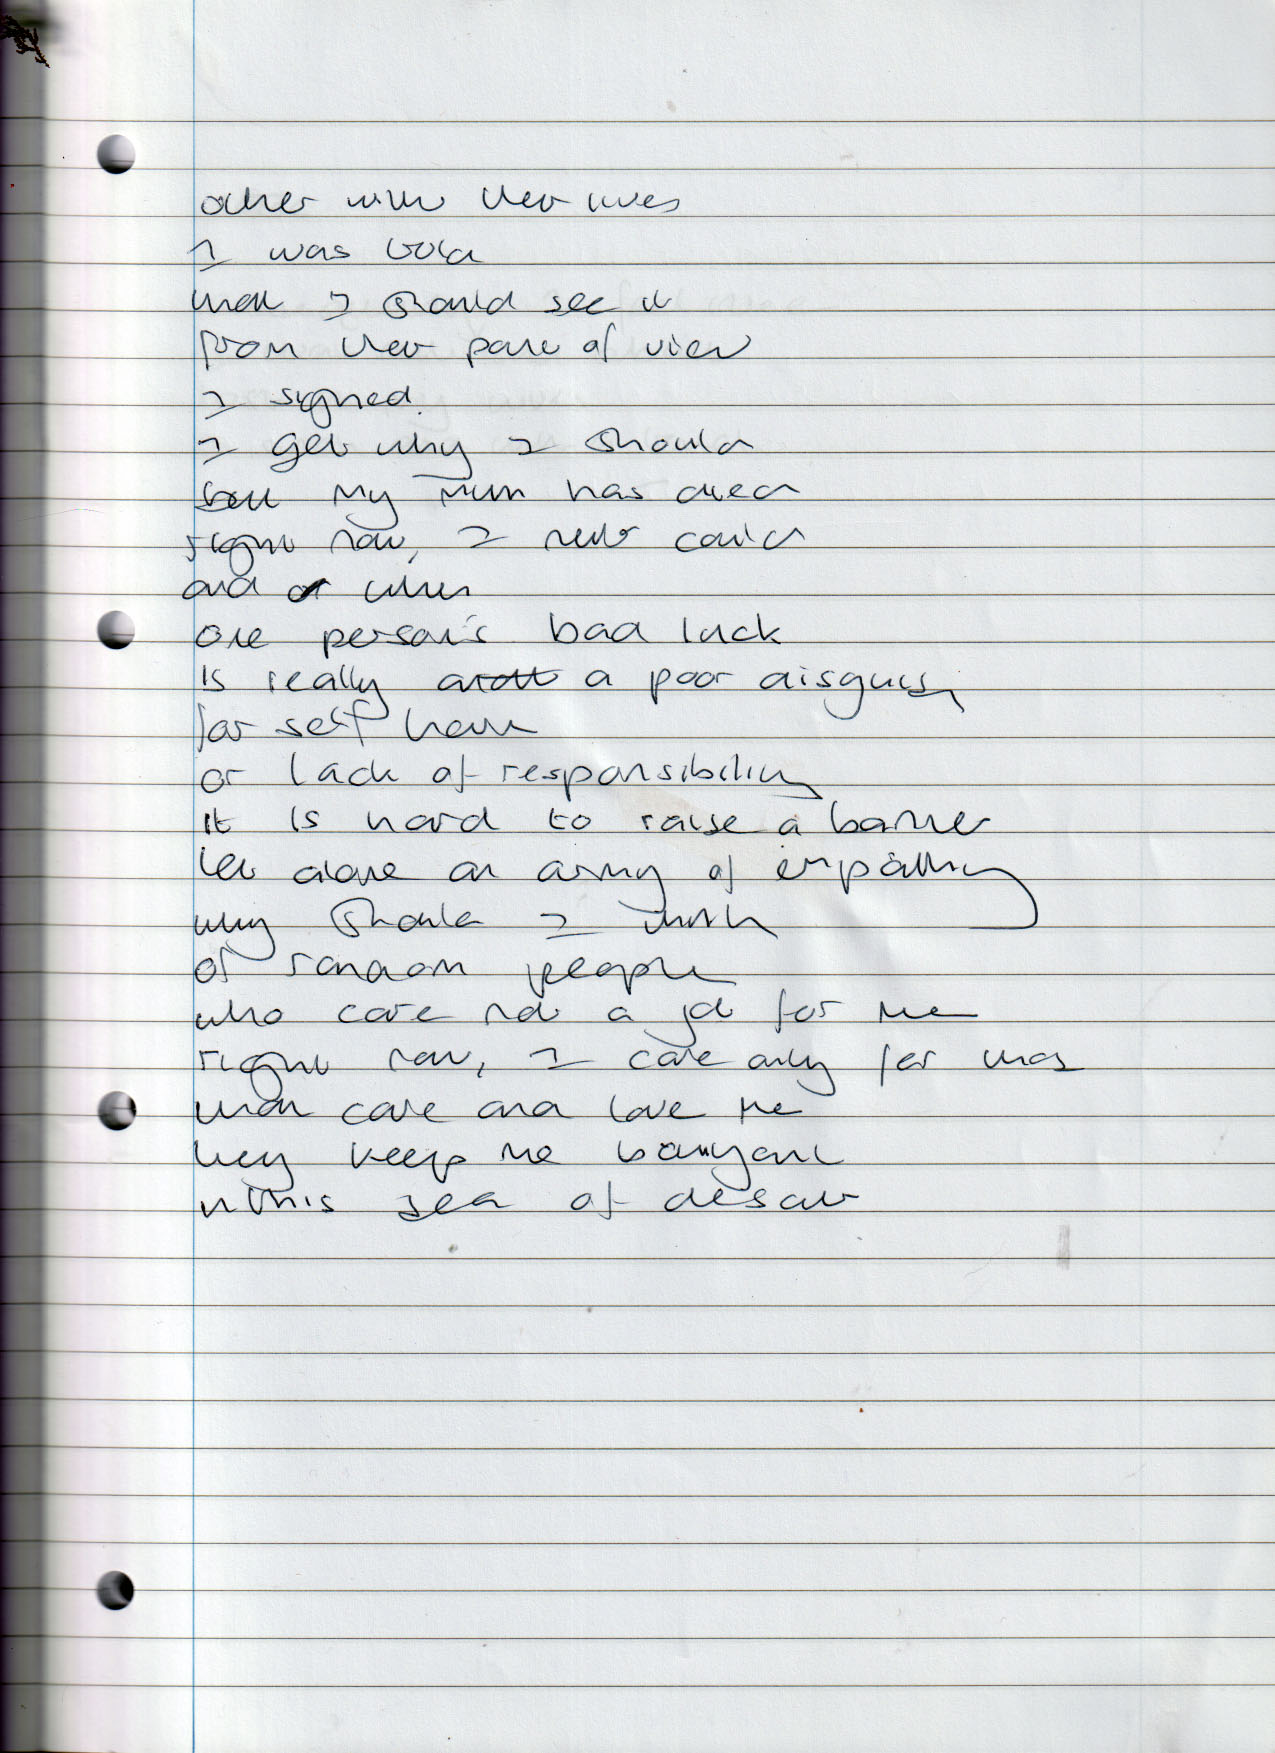 other with their lives
I was told
that I should see it
from their point of view
I sighed.
I get why I should
but my mum has died
right now, I not could
and when
one person's bad luck
is really a poor disguise
for self harm
or lack of responsibility
it is hard to raise a banner
let alone an army of empathy
why should I think
of random people
who care not a jot for me
right now, I care only for those
that care and love me
they keep me bouyant
in this sea of despair